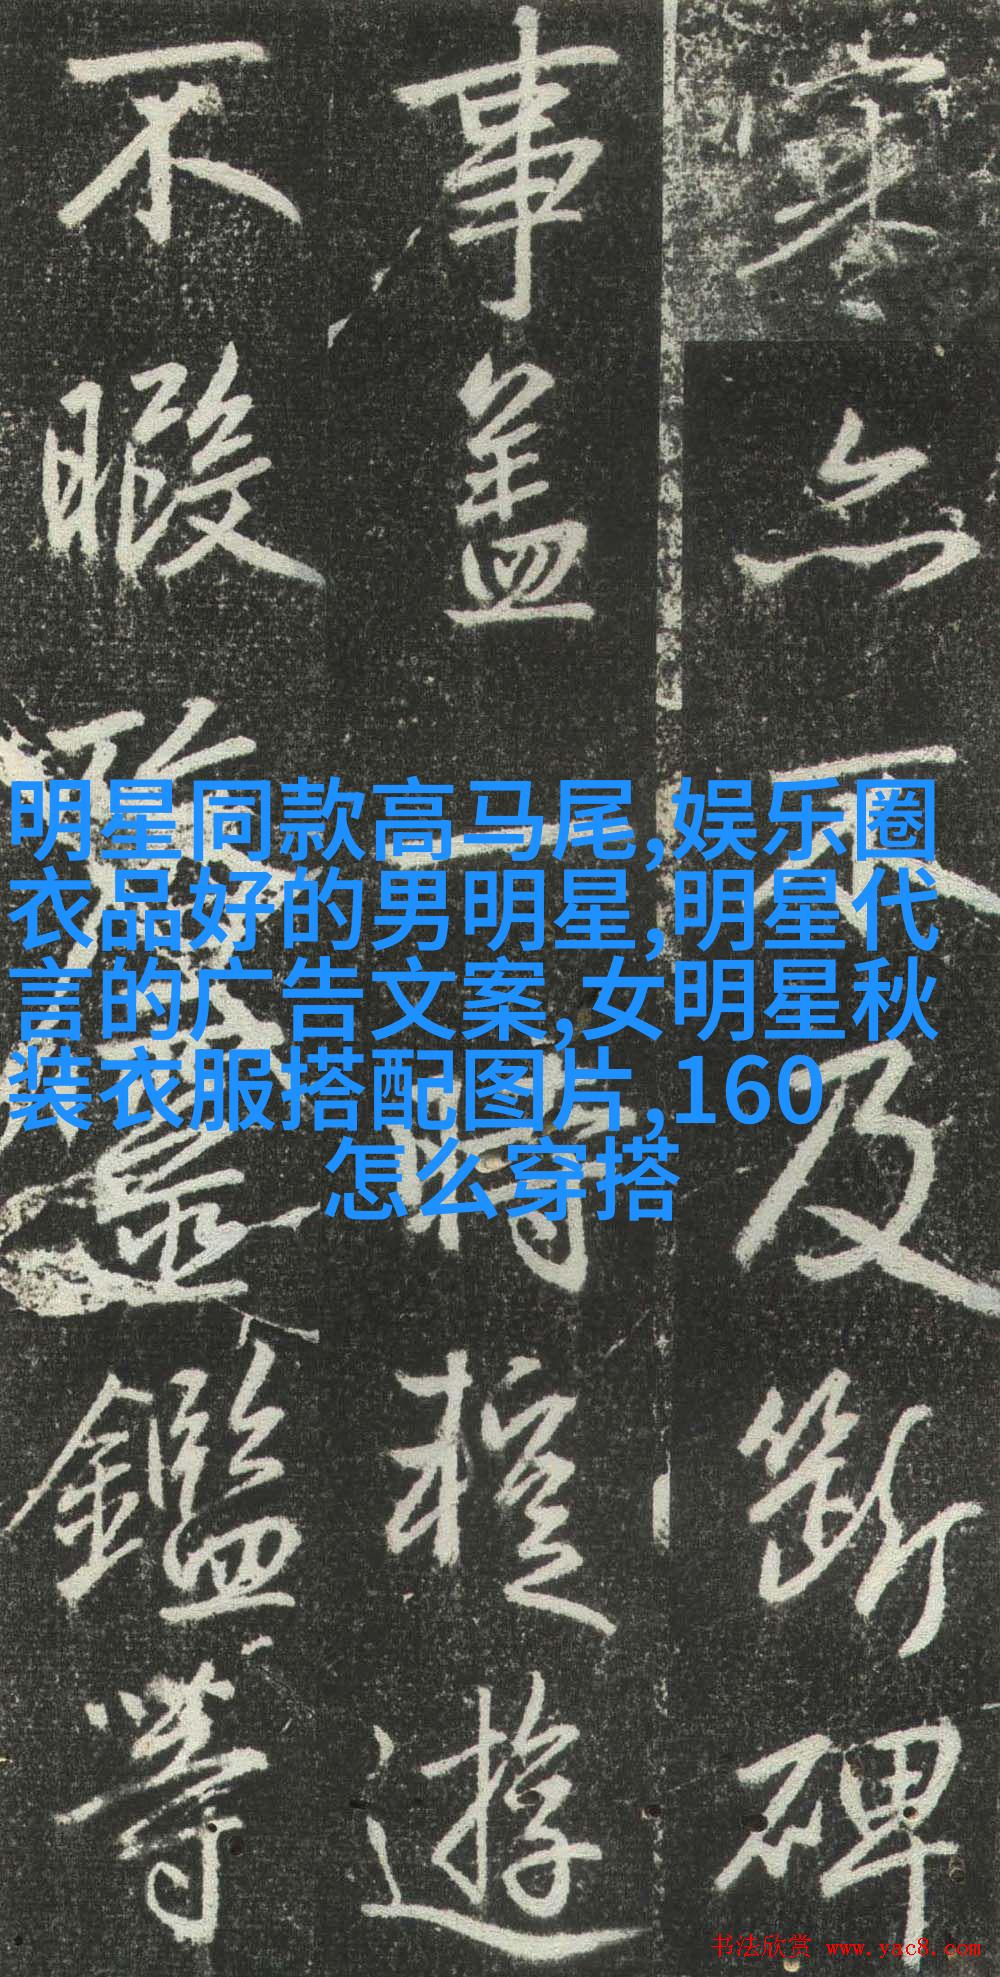 亦不及斷碑
事盖一時遊
不暇盡鑑等
明星同款高马尾,娱乐圈
衣品好的男明星,明星代
言的广告文案,女明星秋
装衣服搭配图片,160
怎么穿搭
书法欣赏 www.yac8.com